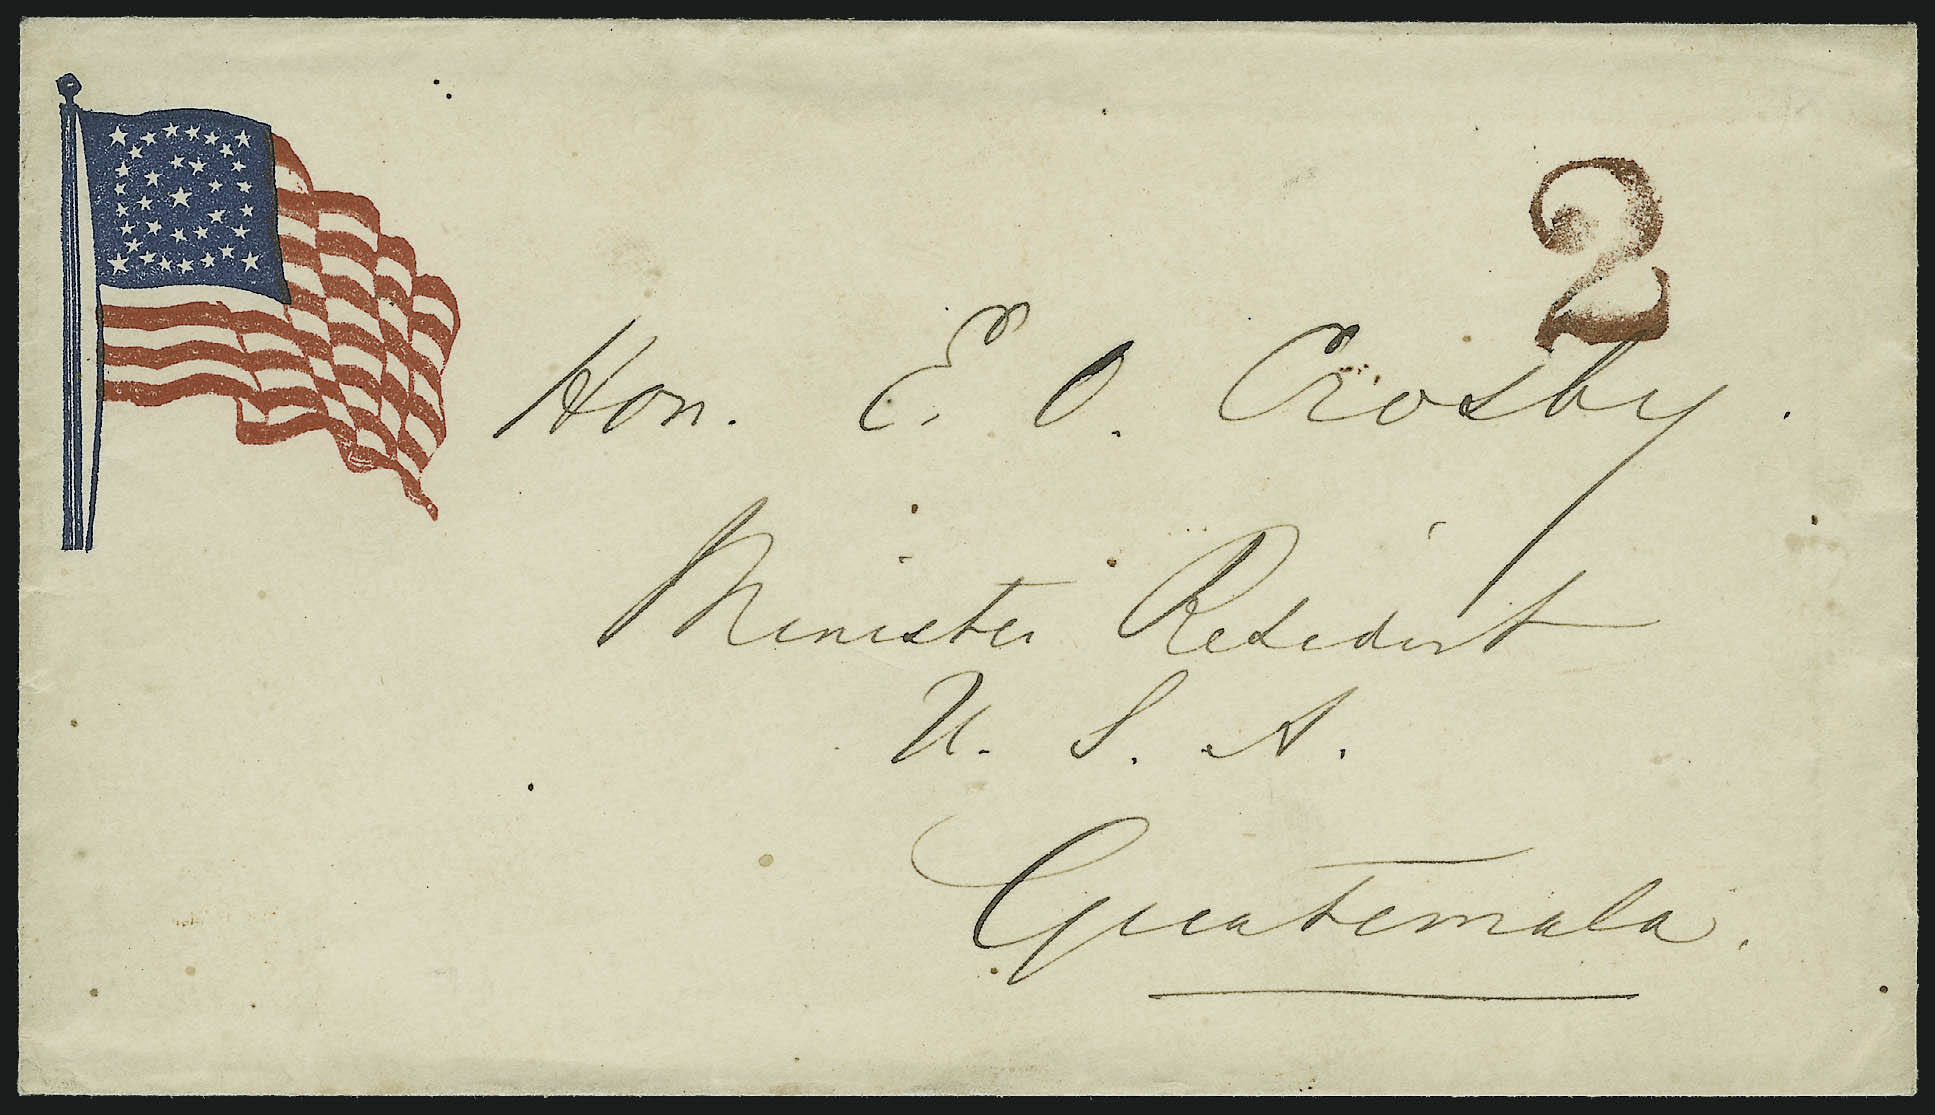 2
Hon. E. O. Crosby.
Minister Resident
U. S. A.
Guatemala.